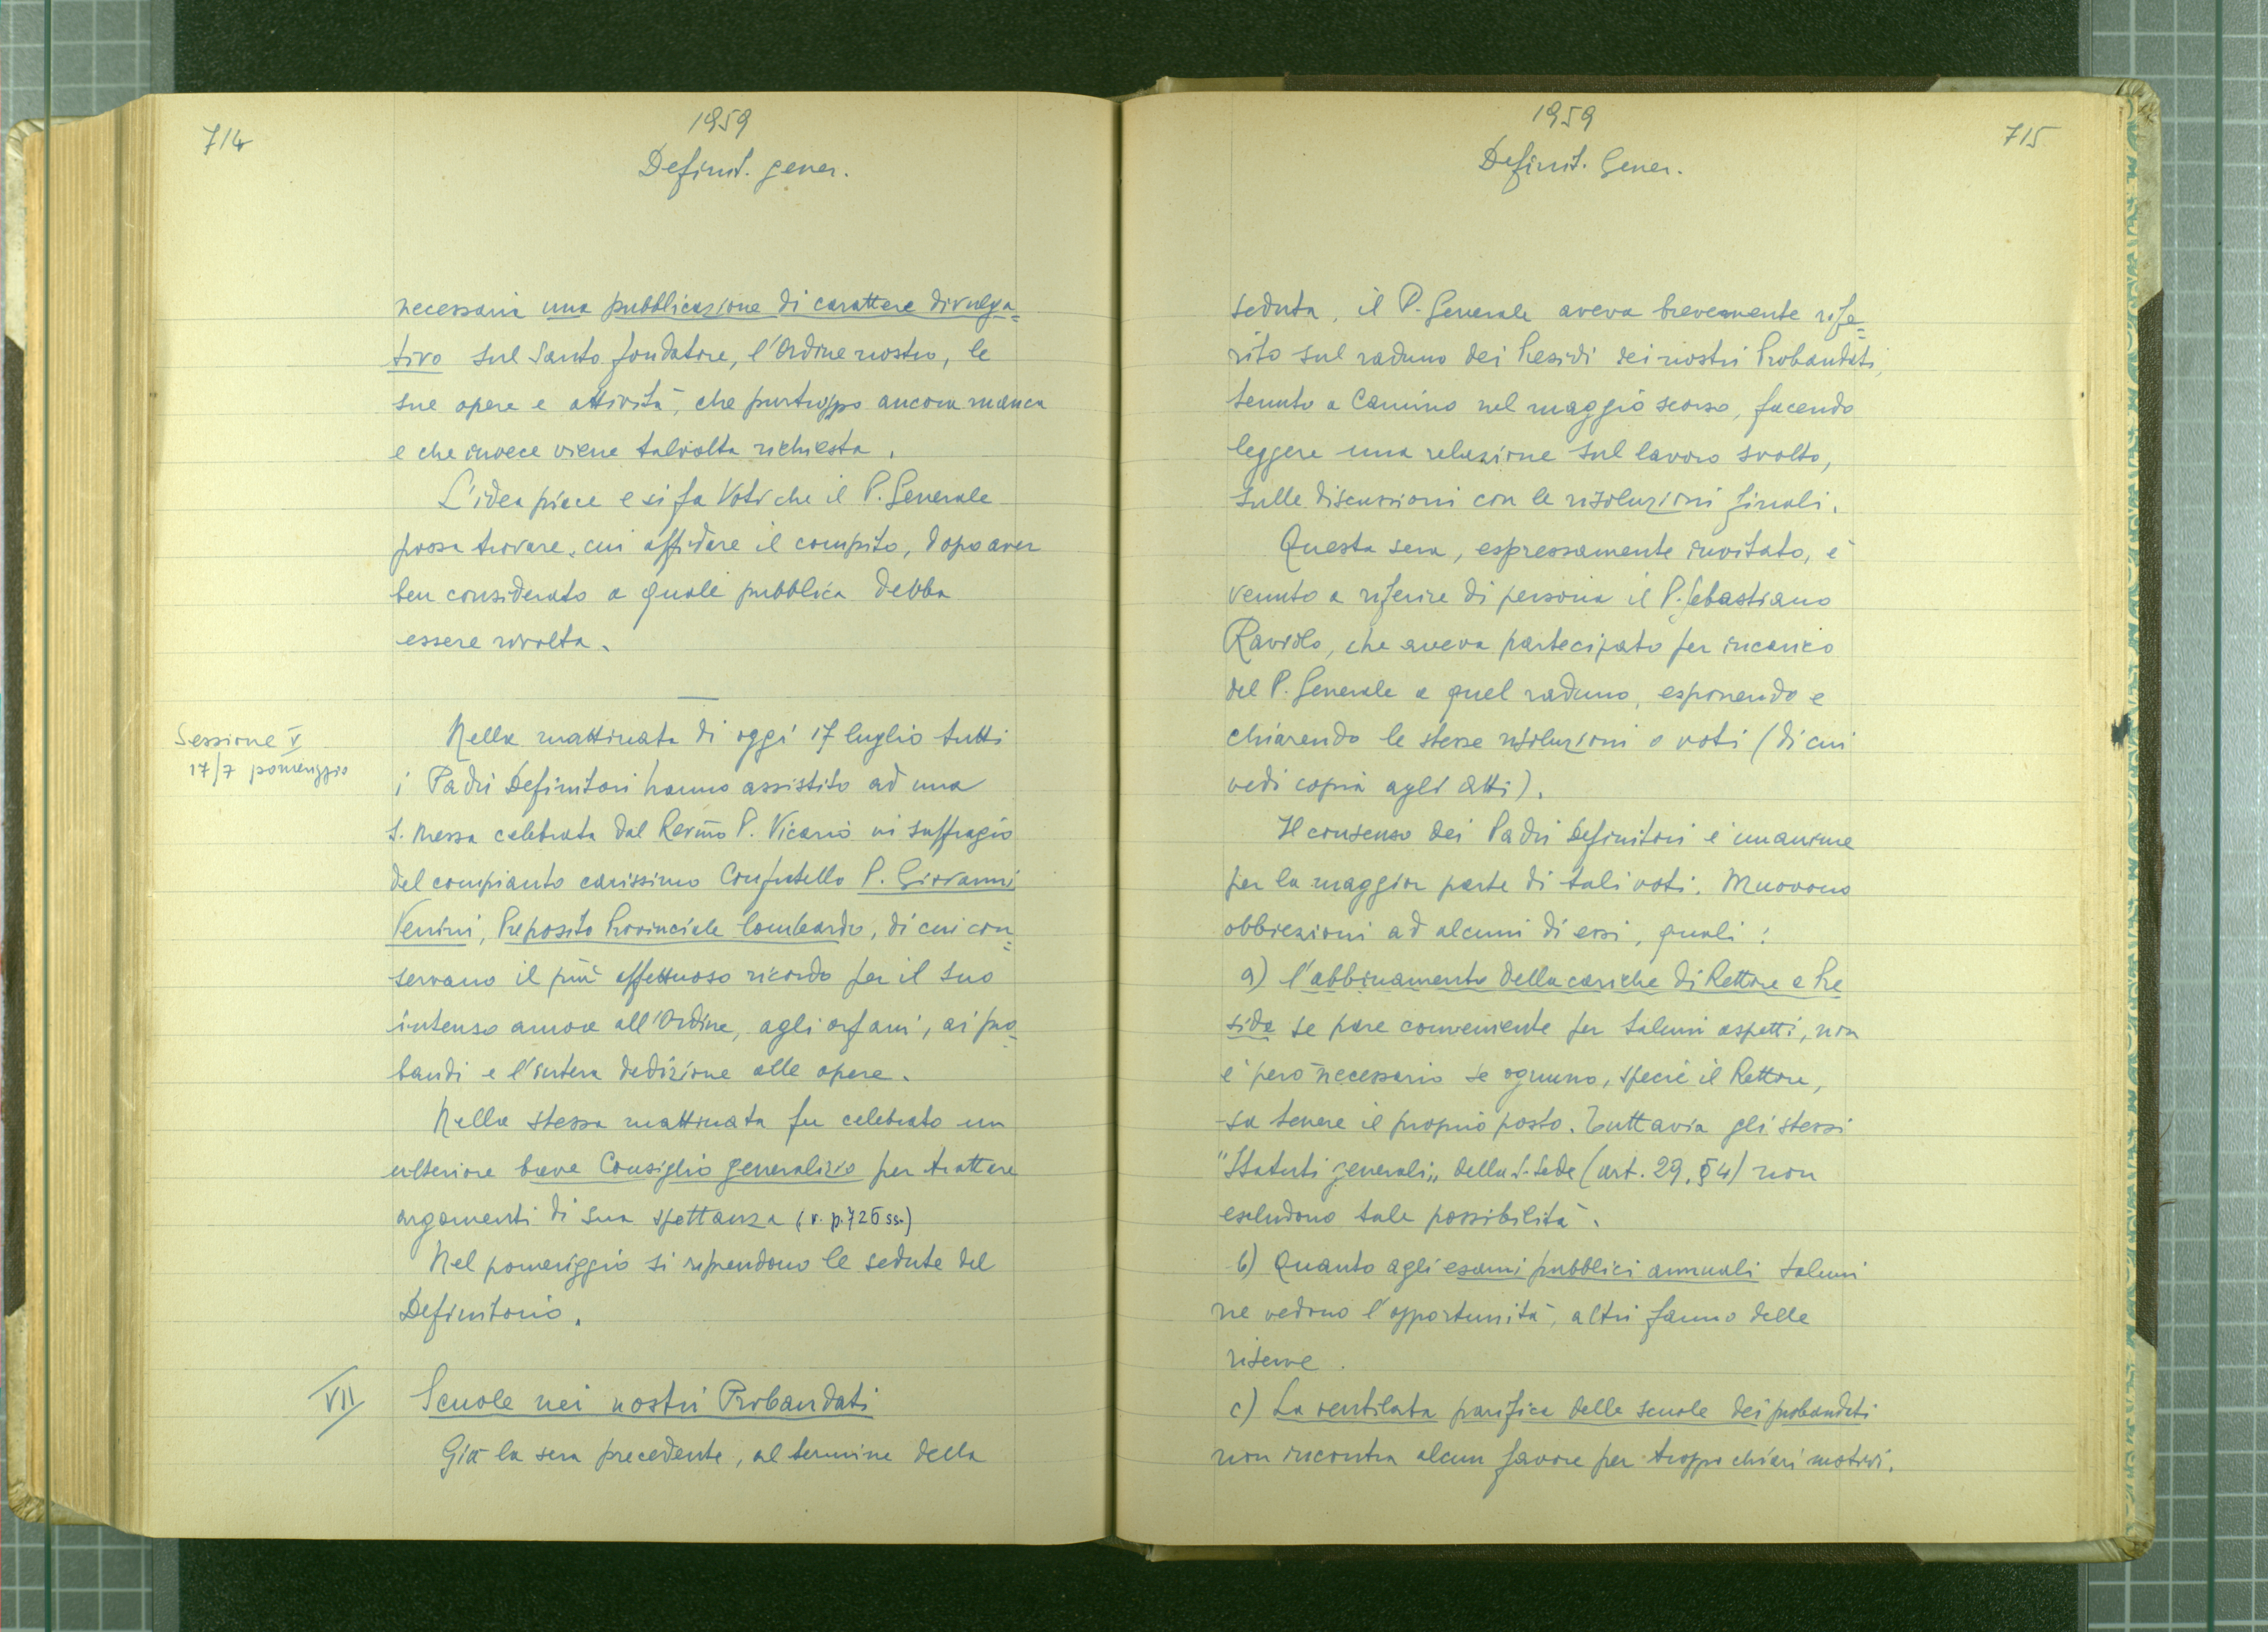 714
1959
Definit. gener.
necessaria una pubblicazione di carattere divulga=
tivo sul Santo fondatore, l'Ordine nostro, le
sue opere e attività, che purtroppo ancora manca
e che invece viene talvolta richiesta.
L'idea piace e si fa voti che il P. Generale
possa trovare cui affidare il compito, dopo aver
ben considerato a quale pubblico debba
essere rivolta.
Sessione V
17/7 pomeriggio
Nella mattinata di oggi 17 luglio tutti
i Padri Definitori hanno assistito ad una
S. Messa celebrata dal Rev.mo P. Vicario in suffragio
del compianto carissimo Confratello P. Giovanni
Venini, Preposito Provinciale lombardo, di cui con=
servano il più affettuoso ricordo per il suo
intenso amore all'Ordine, agli orfani, ai pro=
bandi e l'intera dedizione alle opere.
Nella stessa mattinata fu celebrato un
ulteriore breve Consiglio generalizio per trattare
argomenti di sua spettanza (v. p. 726 ss.)
Nel pomeriggio si riprendono le sedute del
Definitorio.
VII
Scuole nei nostri Probandati
Già la sera precedente, al termine della
715
1959
Definit. Gener.
seduta, il P. Generale aveva brevemente rife=
rito sul raduno dei Presidi dei nostri Probandati,
tenuto a Camino nel maggio scorso, facendo
leggere una relazione sul lavoro svolto,
sulle discussioni con le risoluzioni finali.
Questa sera, espressamente invitato, è
venuto a riferire di persona il P. Sebastiano
Raviolo, che aveva partecipato per incarico
del P. Generale a quel raduno, esponendo e
chiarendo le stesse risoluzioni o voti (di cui
vedi copia agli atti).
Il consenso dei Padri Definitori è unanime
per la maggior parte di tali voti. Muovono
obbiezioni ad alcuni di essi, quali:
a) l'abbinamento della cariche di Rettore e Pre
side se pare conveniente per taluni aspetti, non
è però necessario se ognuno, specie il Rettore,
sa tenere il proprio posto. Tuttavia gli stessi
"Statuti generali" della S. Sede (art. 29, § 4) non
escludono tale possibilità.
b) Quanto agli esami pubblici annuali taluni
ne vedono l'opportunità, altri fanno delle
riserve.
c) La ventilata parifica delle scuole dei probandati
non incontra alcun favore per troppo chiari motivi.